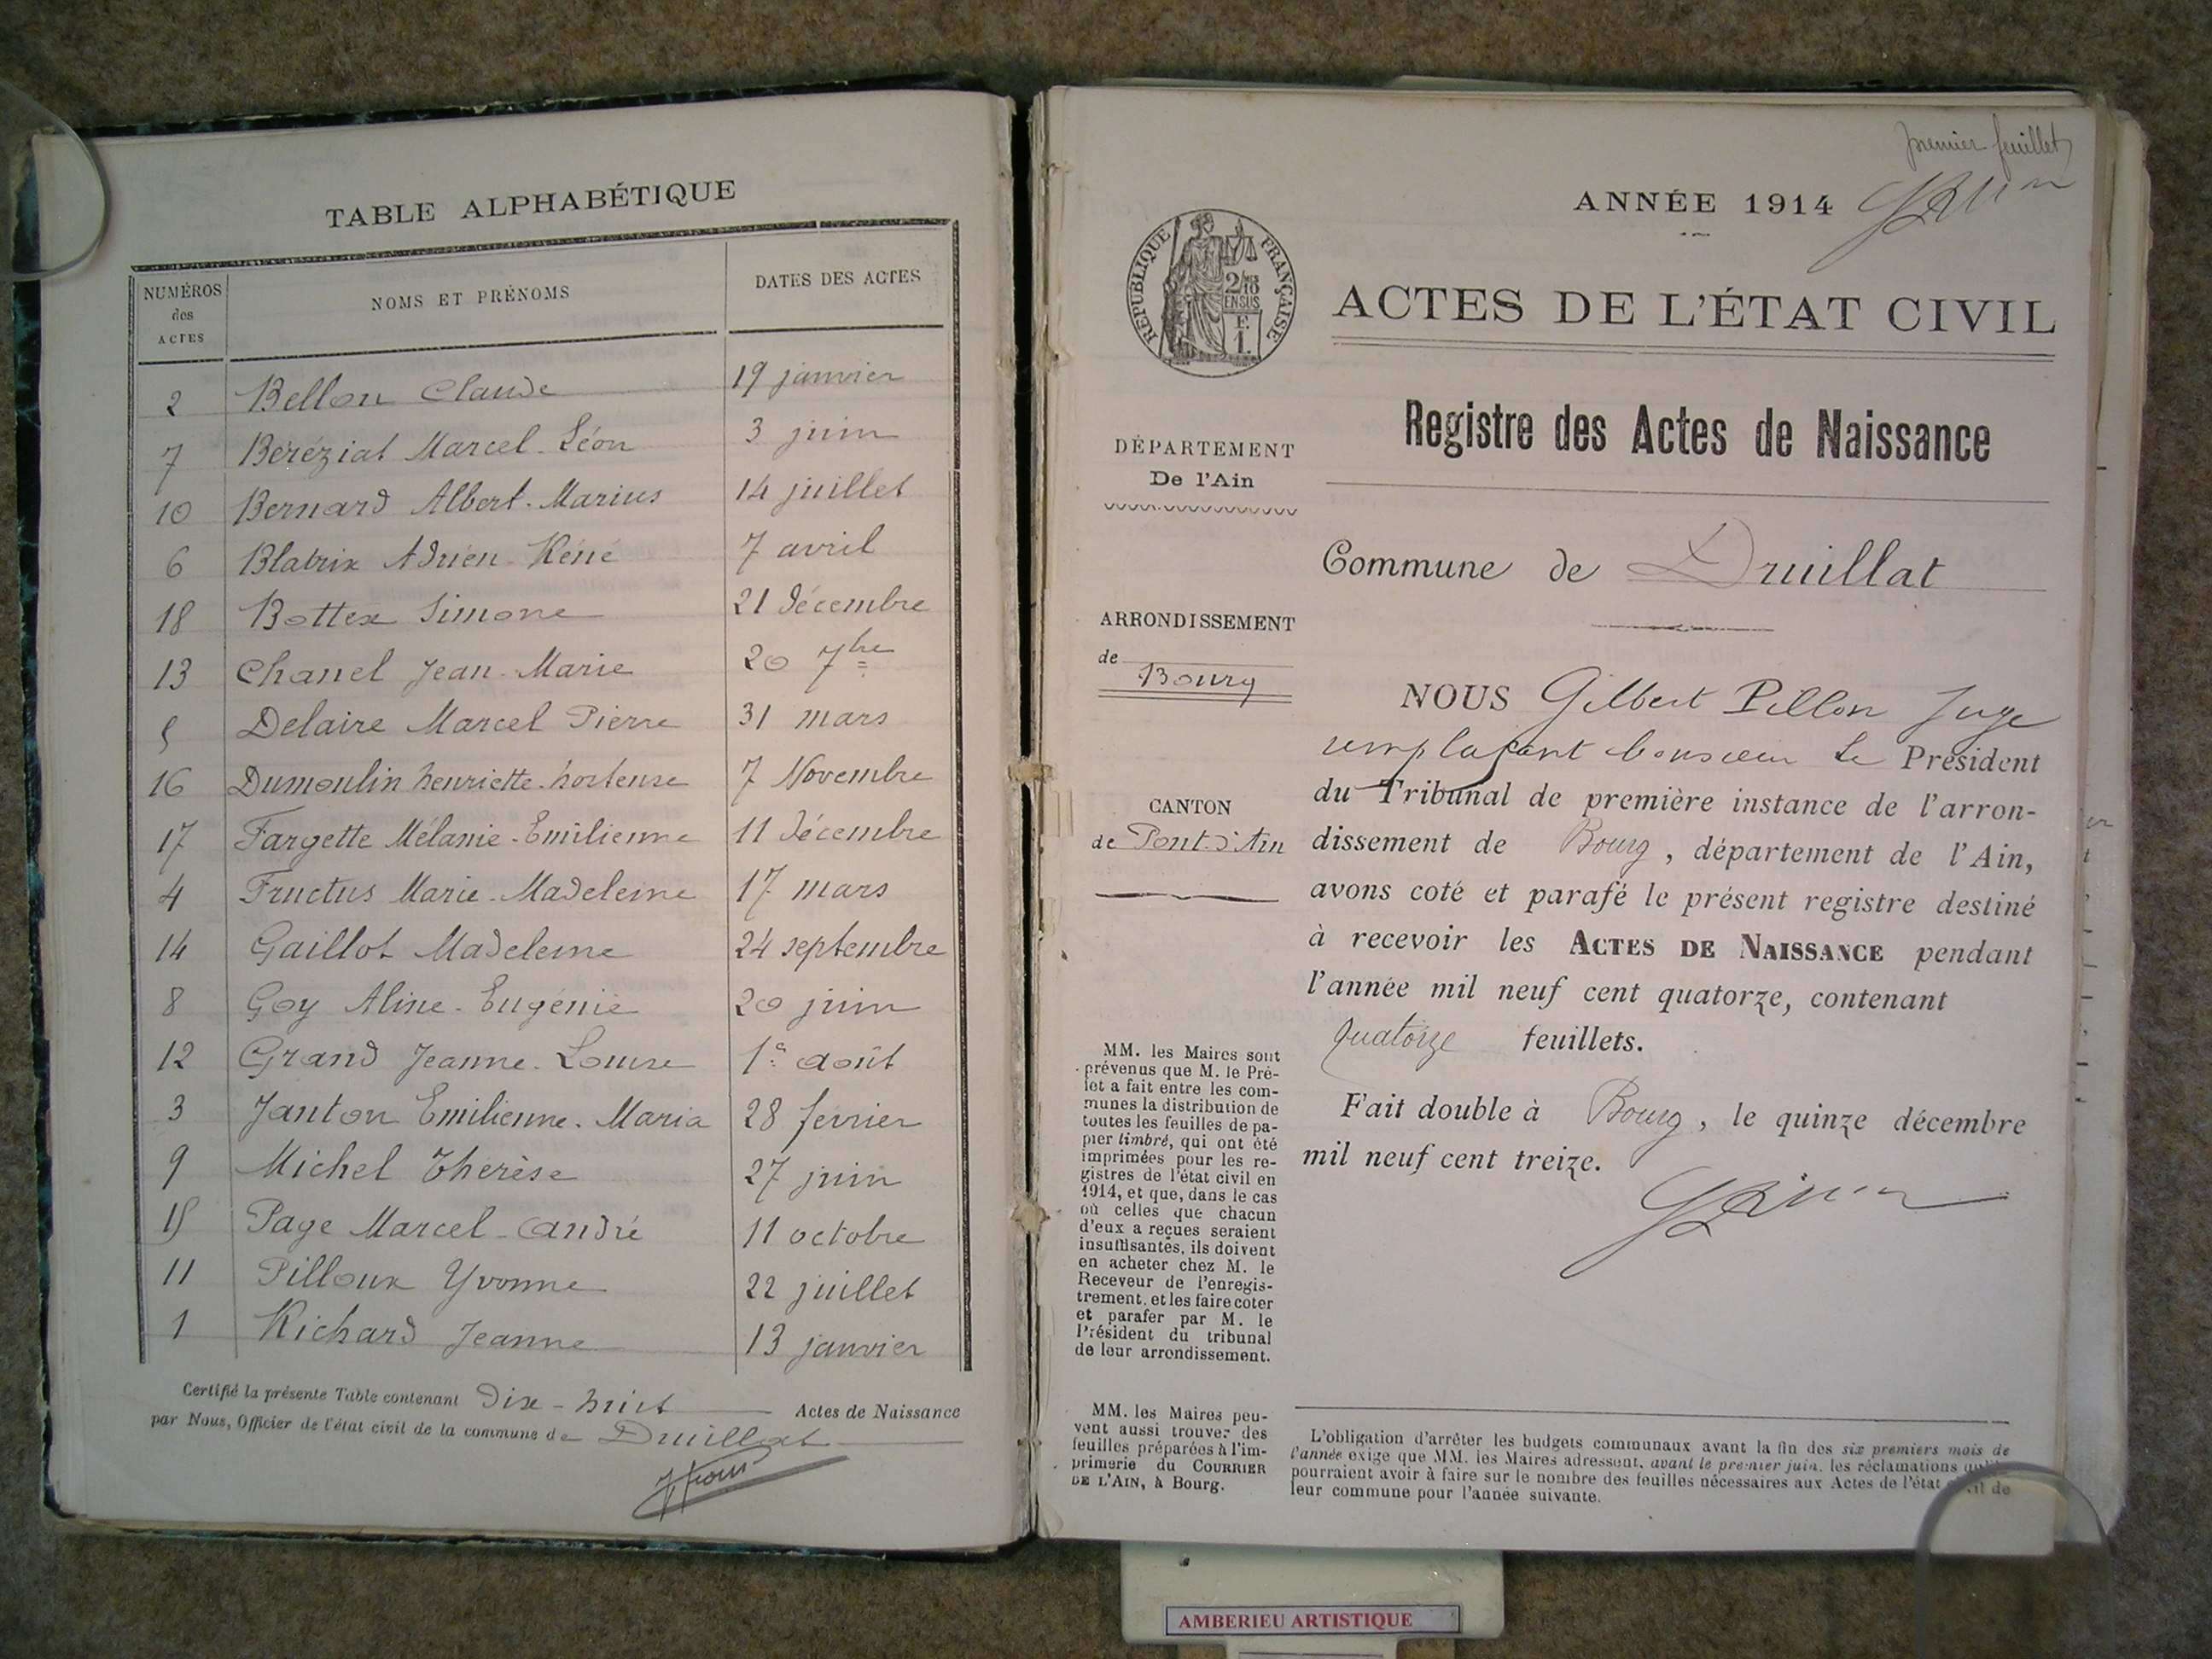 TABLE ALPHABÉTIQUE
NUMÉROS des ACTES NOMS ET PRÉNOMS DATES DES ACTES
2 Bellon Claude 19 janvier
7 Béréziat Marcel-Léon 3 juin
10 Bernard Albert-Marius 14 juillet
6 Blatrix Adrien-Réné 7 avril
18 Bottex Simone 21 décembre
13 Chanel Jean-Marie 20 7bre
5 Delaire Marcel Pierre 31 mars
16 Dumoulin henriette-hortense 7 Novembre
17 Fargette Mélanie-Emilienne 11 décembre
4 Fructus Marie-Madeleine 17 mars
14 Gaillot Madeleine 24 septembre
8 Goy Aline-Eugénie 20 juin
12 Grand Jeanne-Louise 1er août
3 Janton Emilienne-Maria 28 fevrier
9 Michel Thérèse 27 juin
15 Page Marcel-André 11 octobre
11 Pilloux Yvonne 22 juillet
1 Richard Jeanne 13 janvier
Certifié la présente Table contenant Dix-huit Actes de Naissance
par Nous, Officier de l'état civil de la commune de Druillat
premier feuillet
ANNÉE 1914
RÉPUBLIQUE FRANÇAISE
2/10
EN SUS
E.
1.
ACTES DE L'ÉTAT CIVIL
Registre des Actes de Naissance
DÉPARTEMENT
De l'Ain
Commune de Druillat
ARRONDISSEMENT
de Bourg
CANTON
de Pont-d'Ain
NOUS Gilbert Pillon Juge
remplaçant Monsieur Le Président
du Tribunal de première instance de l'arron-
dissement de Bourg, département de l'Ain,
avons coté et parafé le présent registre destiné
à recevoir les ACTES DE NAISSANCE pendant
l'année mil neuf cent quatorze, contenant
quatorze feuillets.
Fait double à Bourg, le quinze décembre
mil neuf cent treize.
MM. les Maires sont
prévenus que M. le Pré-
fet a fait entre les com-
munes la distribution de
toutes les feuilles de pa-
pier timbré, qui ont été
imprimées pour les re-
gistres de l'état civil en
1914, et que, dans le cas
où celles que chacun
d'eux a reçues seraient
insuffisantes, ils doivent
en acheter chez M. le
Receveur de l'enregis-
trement, et les faire coter
et parafer par M. le
Président du tribunal
de leur arrondissement.
MM. les Maires peu-
vent aussi trouver des
feuilles préparées à l'im-
primerie du COURRIER
DE L'AIN, à Bourg.
L'obligation d'arrêter les budgets communaux avant la fin des six premiers mois de
l'année exige que MM. les Maires adressent, avant le premier juin, les réclamations qu'ils
pourraient avoir à faire sur le nombre des feuilles nécessaires aux Actes de l'état civil de
leur commune pour l'année suivante.
AMBERIEU ARTISTIQUE